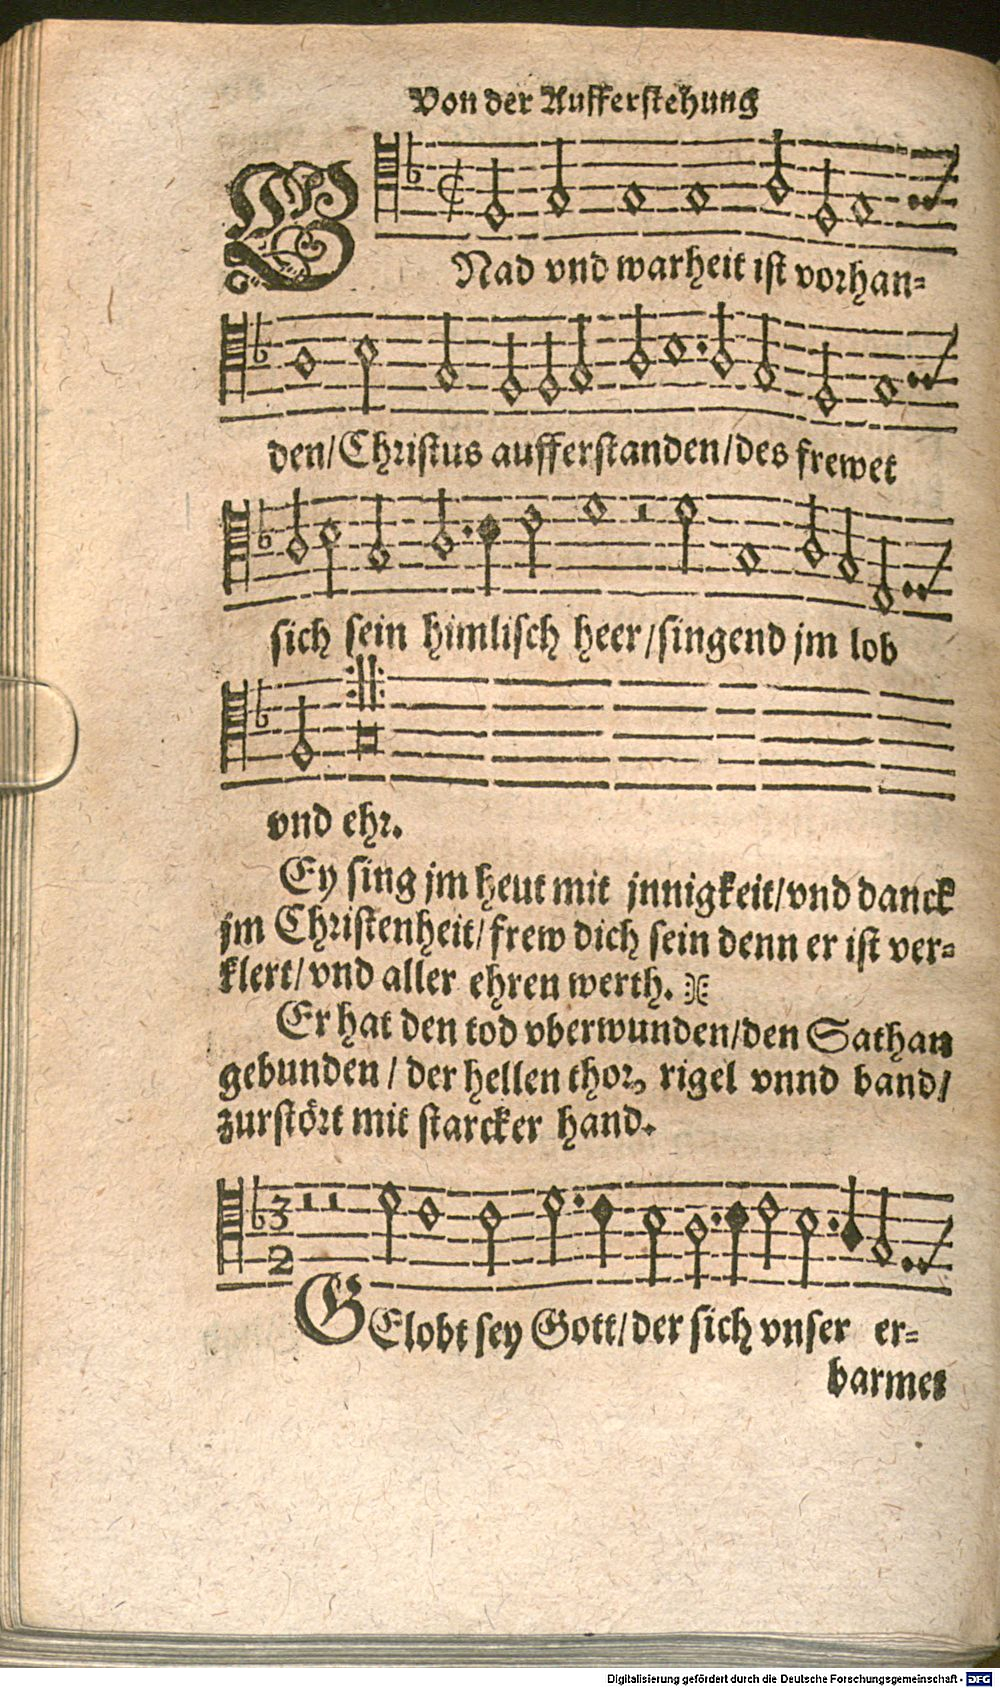 Von der Aufferstehung
GNad vnd warheit ist vorhan=
den/Christus aufferstanden/des frewet
sich sein himlisch heer/singend jm lob
vnd ehr.
Ey sing jm heut mit jnnigkeit/vnd danck
jm Christenheit/frew dich sein denn er ist ver=
klert/vnd aller ehren werth.
Er hat den tod vberwunden/den Sathan
gebunden/der hellen thor, rigel vnnd band/
zurstört mit starcker hand.
3
2
GElobt sey Gott/der sich vnser er=
barmet
Digitalisierung gefördert durch die Deutsche Forschungsgemeinschaft - DFG